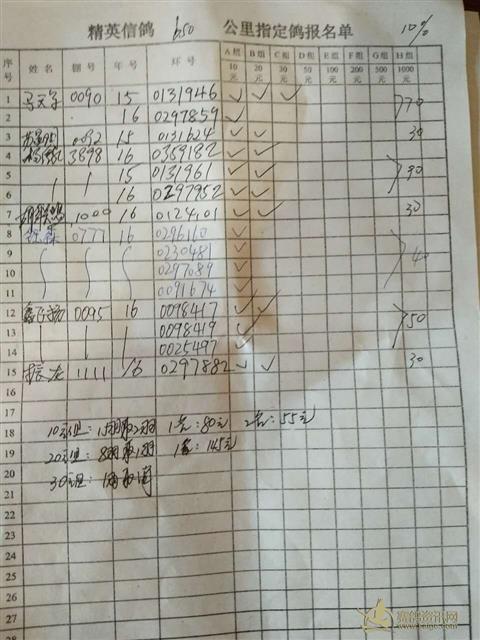 精英信鸽 650 公里指定鸽报名单 10%
序号 姓名 棚号 年号 环号 A组10元 B组20元 C组30元 D组50元 E组100元 F组200元 G组500元 H组1000元
1 0090 15 0131946 ✓ ✓ ✓ 70
2 16 0297859 ✓
3 15 0131624 ✓ ✓ 30
4 3898 16 0369182 ✓ ✓
5 15 0131961 ✓ ✓ 90
6 16 0297952 ✓ ✓
7 1000 16 0124101 ✓ ✓ 30
8 0777 16 0296110 ✓
9 0230481 ✓ 40
10 0297089 ✓
11 0091674 ✓
12 0095 16 0098417 ✓ ✓
13 0098419 ✓ 50
14 0025497 ✓
15 1111 16 0297882 ✓ ✓ 30
16
17
18 10元组: 15羽取2羽 1名:80元 2名:55元
19 20元组: 8羽取1羽 1名:145元
20 30元组:
21
22
23
24
25
26
27
28
赛鸽资讯网